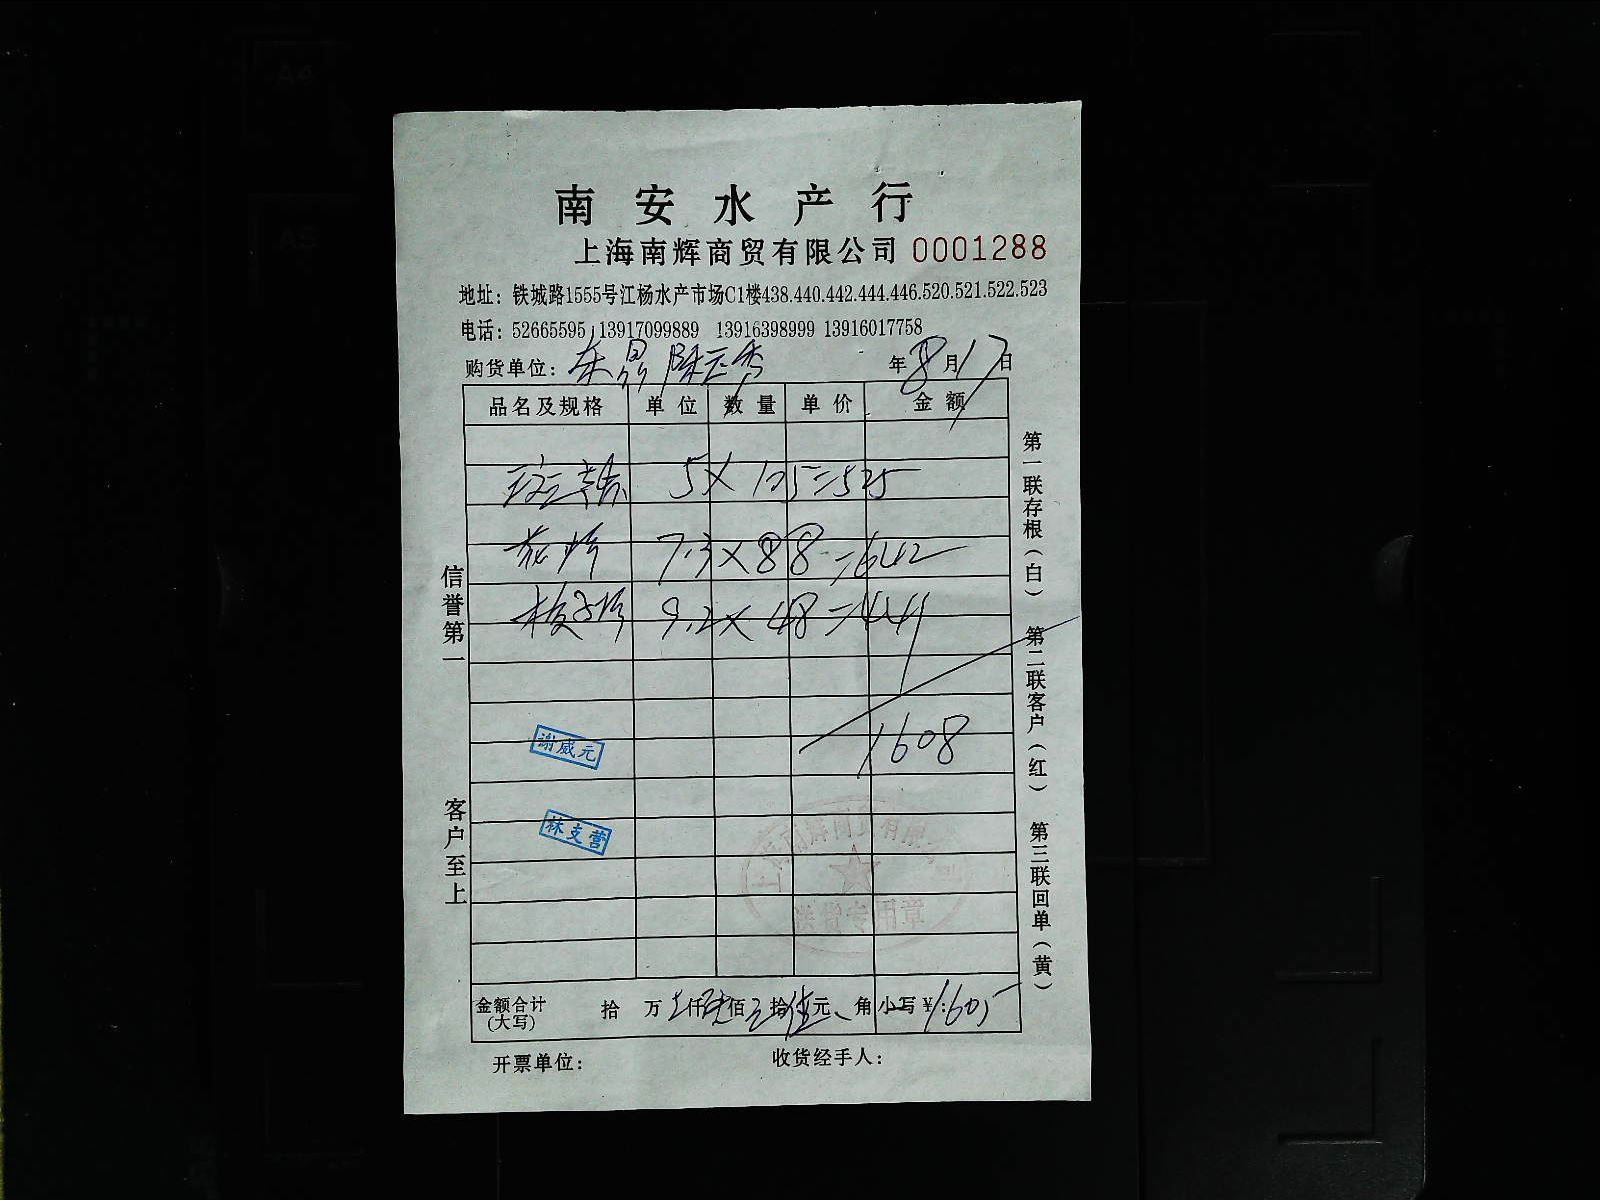 南安水产行
上海南辉商贸有限公司 0001288
地址：铁城路1555号江杨水产市场C1楼438.440.442.444.446.520.521.522.523
电话：52665595 13917099889 13916398999 13916017758
购货单位： 年8月17日
品名及规格 单位 数量 单价 金额
5×105=525
7.3×88=642
9.2×48=441
1608
谢威元
林支营
送货专用章
金额合计(大写) 拾 万 仟 佰 拾 元 角 小写￥:1605
开票单位： 收货经手人：
信誉第一
客户至上
第一联存根（白）
第二联客户（红）
第三联回单（黄）